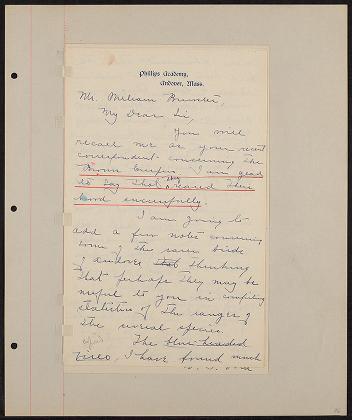 Phillips Academy,
Andover, Mass.
Mr. William Brewster,
My Dear Sir,
You will
recall me as your recent
correspondent concerning the
Brown Creeper. I am glad
to say that they reared their
brood successfully.
I am going to
add a few notes concerning
some of the rarer birds
of Andover thinking
that perhaps they may be
useful to you in compiling
statistics of the ranges of
the several species.
The blue-headed
vireo, I have found much